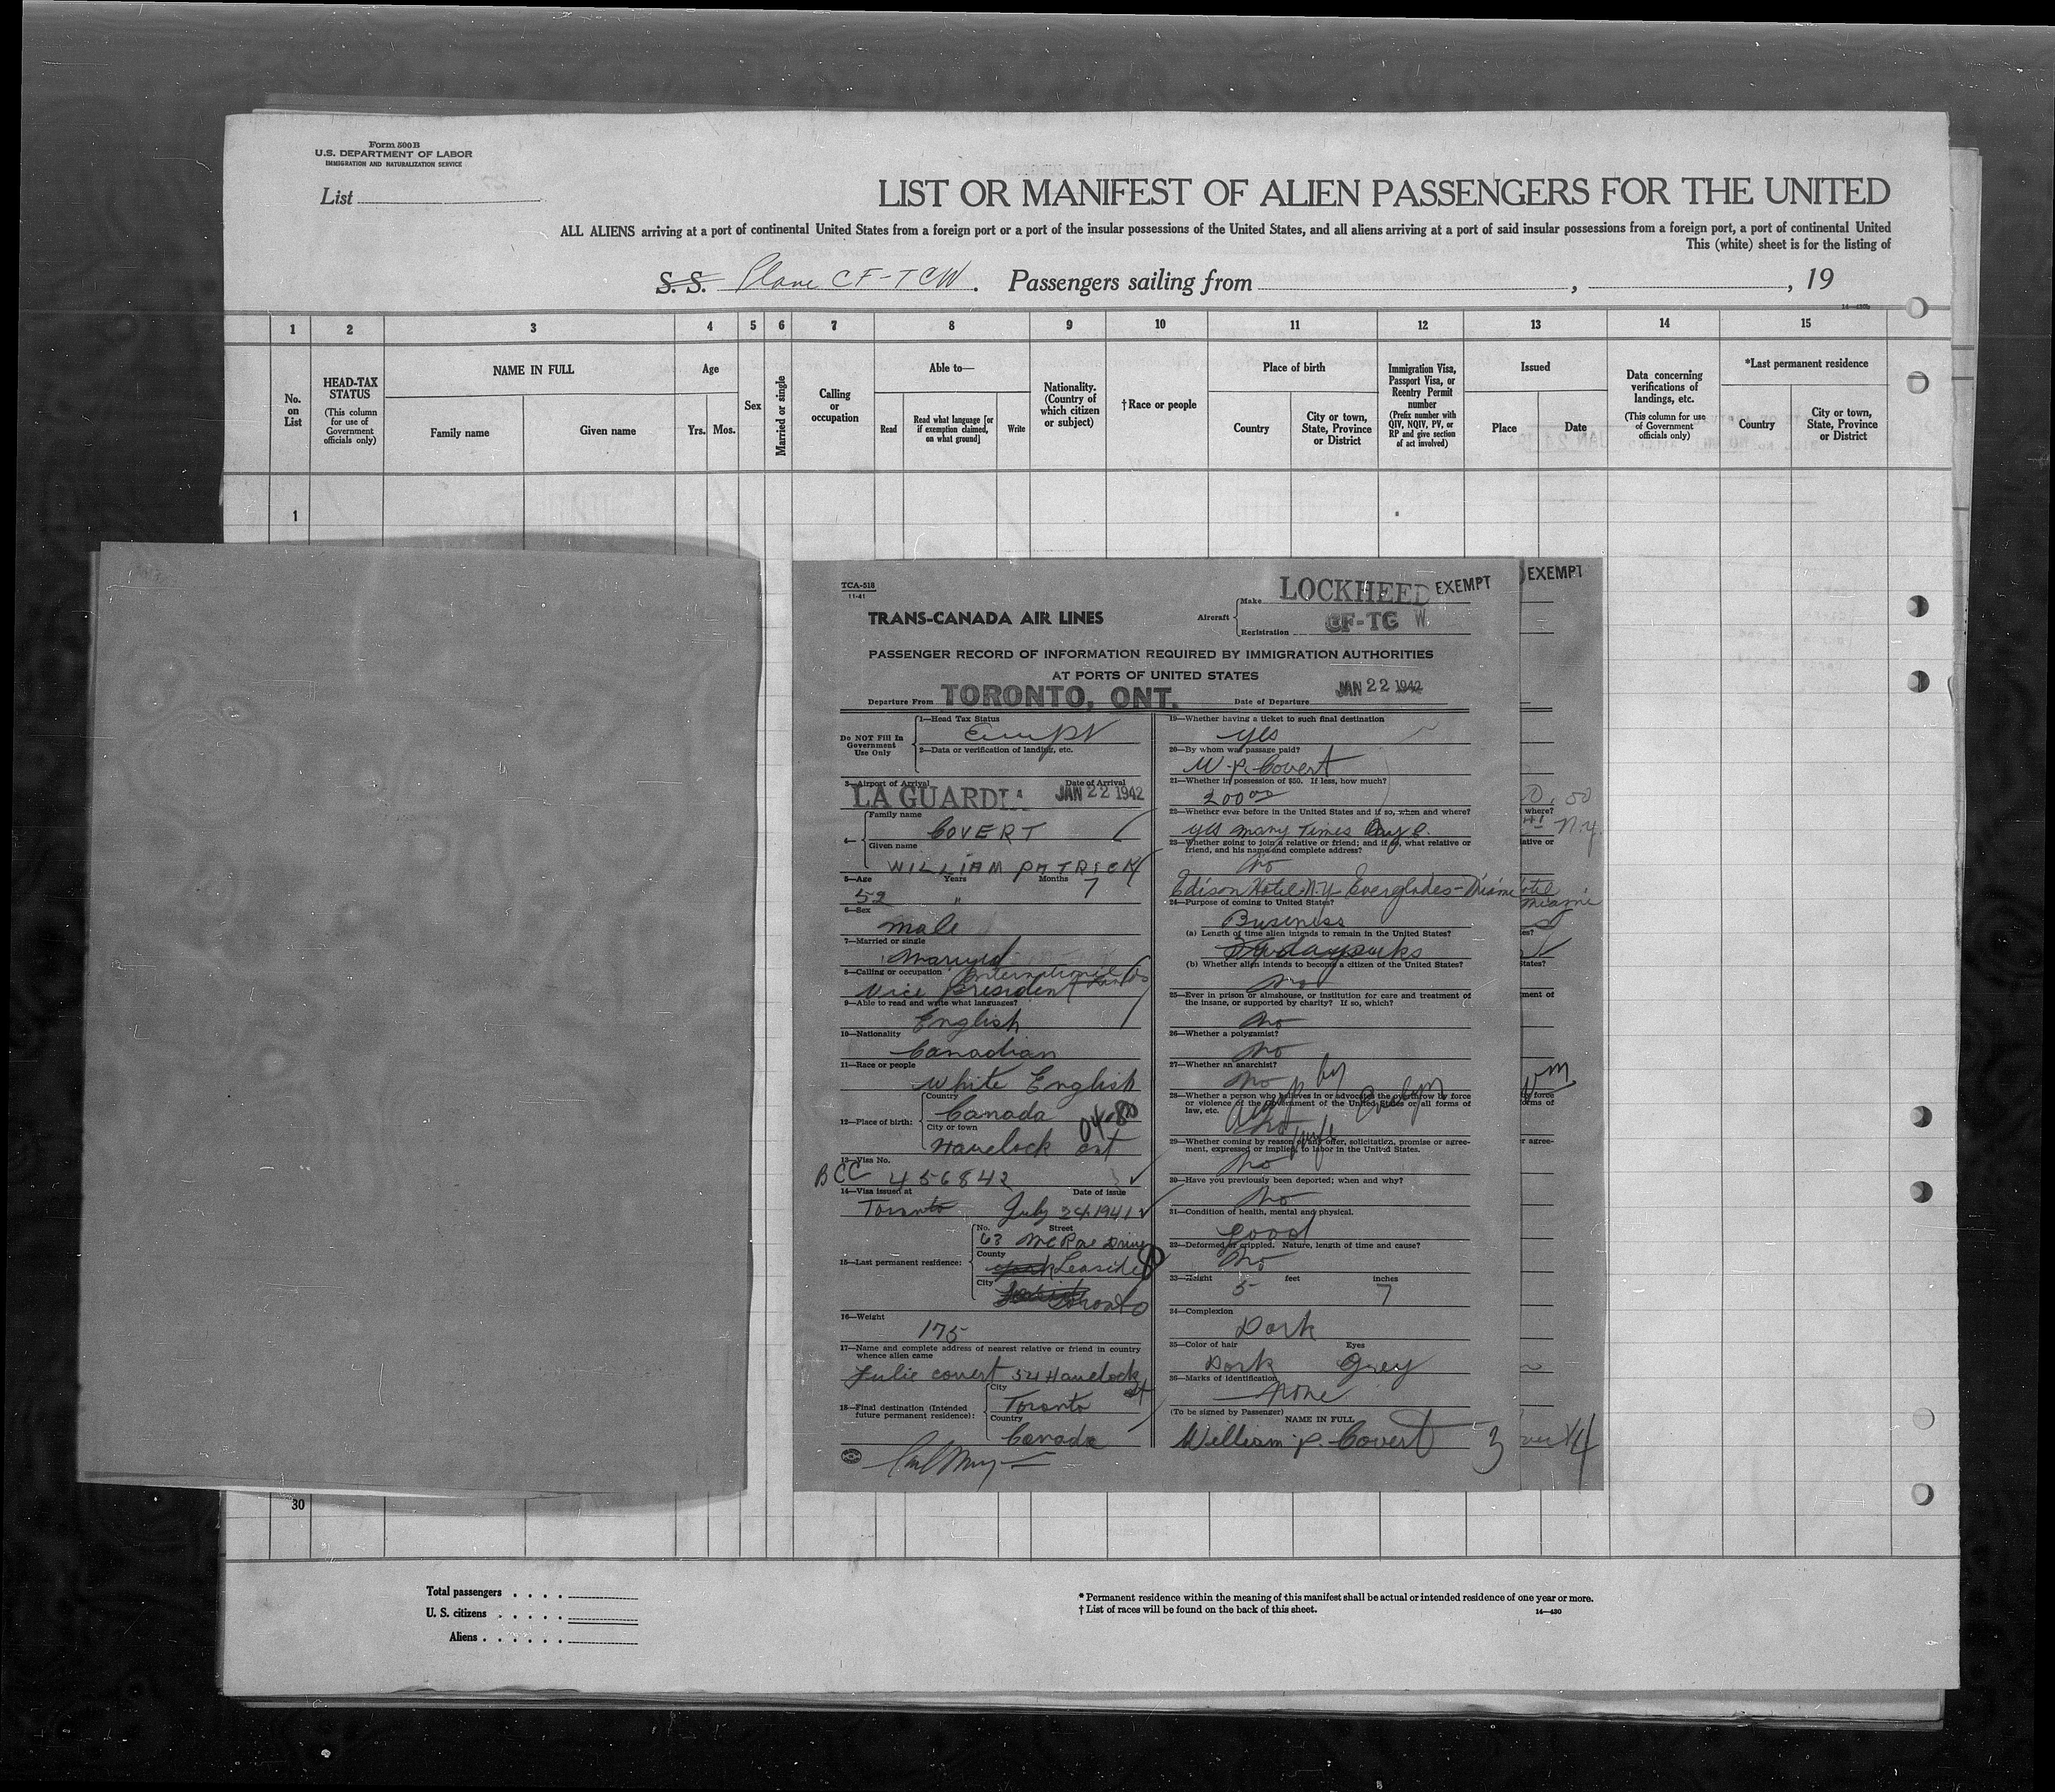 Form 500B
U.S. DEPARTMENT OF LABOR
IMMIGRATION AND NATURALIZATION SERVICE
List
LIST OR MANIFEST OF ALIEN PASSENGERS FOR THE UNITED
ALL ALIENS arriving at a port of continental United States from a foreign port or a port of the insular possessions of the United States, and all aliens arriving at a port of said insular possessions from a foreign port, a port of continental United
This (white) sheet is for the listing of
S. S. Plane CF-TCW. Passengers sailing from , , 19
1 2 3 4 5 6 7 8 9 10 11 12 13 14 15
No. on List
HEAD-TAX STATUS
(This column for use of Government officials only)
NAME IN FULL
Family name
Given name
Age
Yrs.
Mos.
Sex
Married or single
Calling or occupation
Able to—
Read
Read what language [or if exemption claimed, on what ground]
Write
Nationality. (Country of which citizen or subject)
†Race or people
Place of birth
Country
City or town, State, Province or District
Immigration Visa, Passport Visa, or Reentry Permit number
(Prefix number with QIV, NQIV, PV, or RP and give section of act involved)
Issued
Place
Date
Data concerning verifications of landings, etc.
(This column for use of Government officials only)
*Last permanent residence
Country
City or town, State, Province or District
1
TCA-518
11-41
TRANS-CANADA AIR LINES
Aircraft
Make LOCKHEED EXEMPT
Registration CF-TC W
EXEMPT
PASSENGER RECORD OF INFORMATION REQUIRED BY IMMIGRATION AUTHORITIES
AT PORTS OF UNITED STATES
Departure From TORONTO, ONT. Date of Departure JAN 22 1942
Do NOT Fill In Government Use Only
1—Head Tax Status
Exempt
2—Data or verification of landing, etc.
3—Airport of Arrival Date of Arrival
LA GUARDIA JAN 22 1942
4—
Family name
COVERT
Given name
WILLIAM PATRICK
5—Age Years Months
52 " 7
6—Sex
male
7—Married or single
Married
8—Calling or occupation International
Vice President
9—Able to read and write what languages?
English
10—Nationality
Canadian
11—Race or people
White English
12—Place of birth:
Country
Canada
City or town
Havelock Ont
13—Visa No.
BCC 456842
14—Visa issued at Date of issue
Toronto July 24, 1941
15—Last permanent residence:
No. Street
63 McRae Drive
County
York Leaside
City
Toronto
16—Weight
175
17—Name and complete address of nearest relative or friend in country whence alien came
Julie covert 54 Havelock St
18—Final destination (Intended future permanent residence):
City
Toronto
Country
Canada
19—Whether having a ticket to such final destination
yes
20—By whom was passage paid?
W. P. Covert
21—Whether in possession of $50. If less, how much?
200 00
22—Whether ever before in the United States and if so, when and where?
yes many Times
23—Whether going to join a relative or friend; and if so, what relative or friend, and his name and complete address?
no
Edison Hotel N.Y. Everglades - Miami
24—Purpose of coming to United States?
Business
(a) Length of time alien intends to remain in the United States?
(b) Whether alien intends to become a citizen of the United States?
no
25—Ever in prison or almshouse, or institution for care and treatment of the insane, or supported by charity? If so, which?
no
26—Whether a polygamist?
no
27—Whether an anarchist?
no
28—Whether a person who believes in or advocates the overthrow by force or violence of the Government of the United States or all forms of law, etc.
no
29—Whether coming by reason of any offer, solicitation, promise or agreement, expressed or implied, to labor in the United States.
no
30—Have you previously been deported; when and why?
no
31—Condition of health, mental and physical.
good
32—Deformed or crippled. Nature, length of time and cause?
no
33—Height feet inches
5 7
34—Complexion
Dark
35—Color of hair Eyes
Dark Grey
36—Marks of identification
none
(To be signed by Passenger)
NAME IN FULL
William P. Covert 3
4
30
Total passengers
U. S. citizens
Aliens
* Permanent residence within the meaning of this manifest shall be actual or intended residence of one year or more.
† List of races will be found on the back of this sheet.
14—430